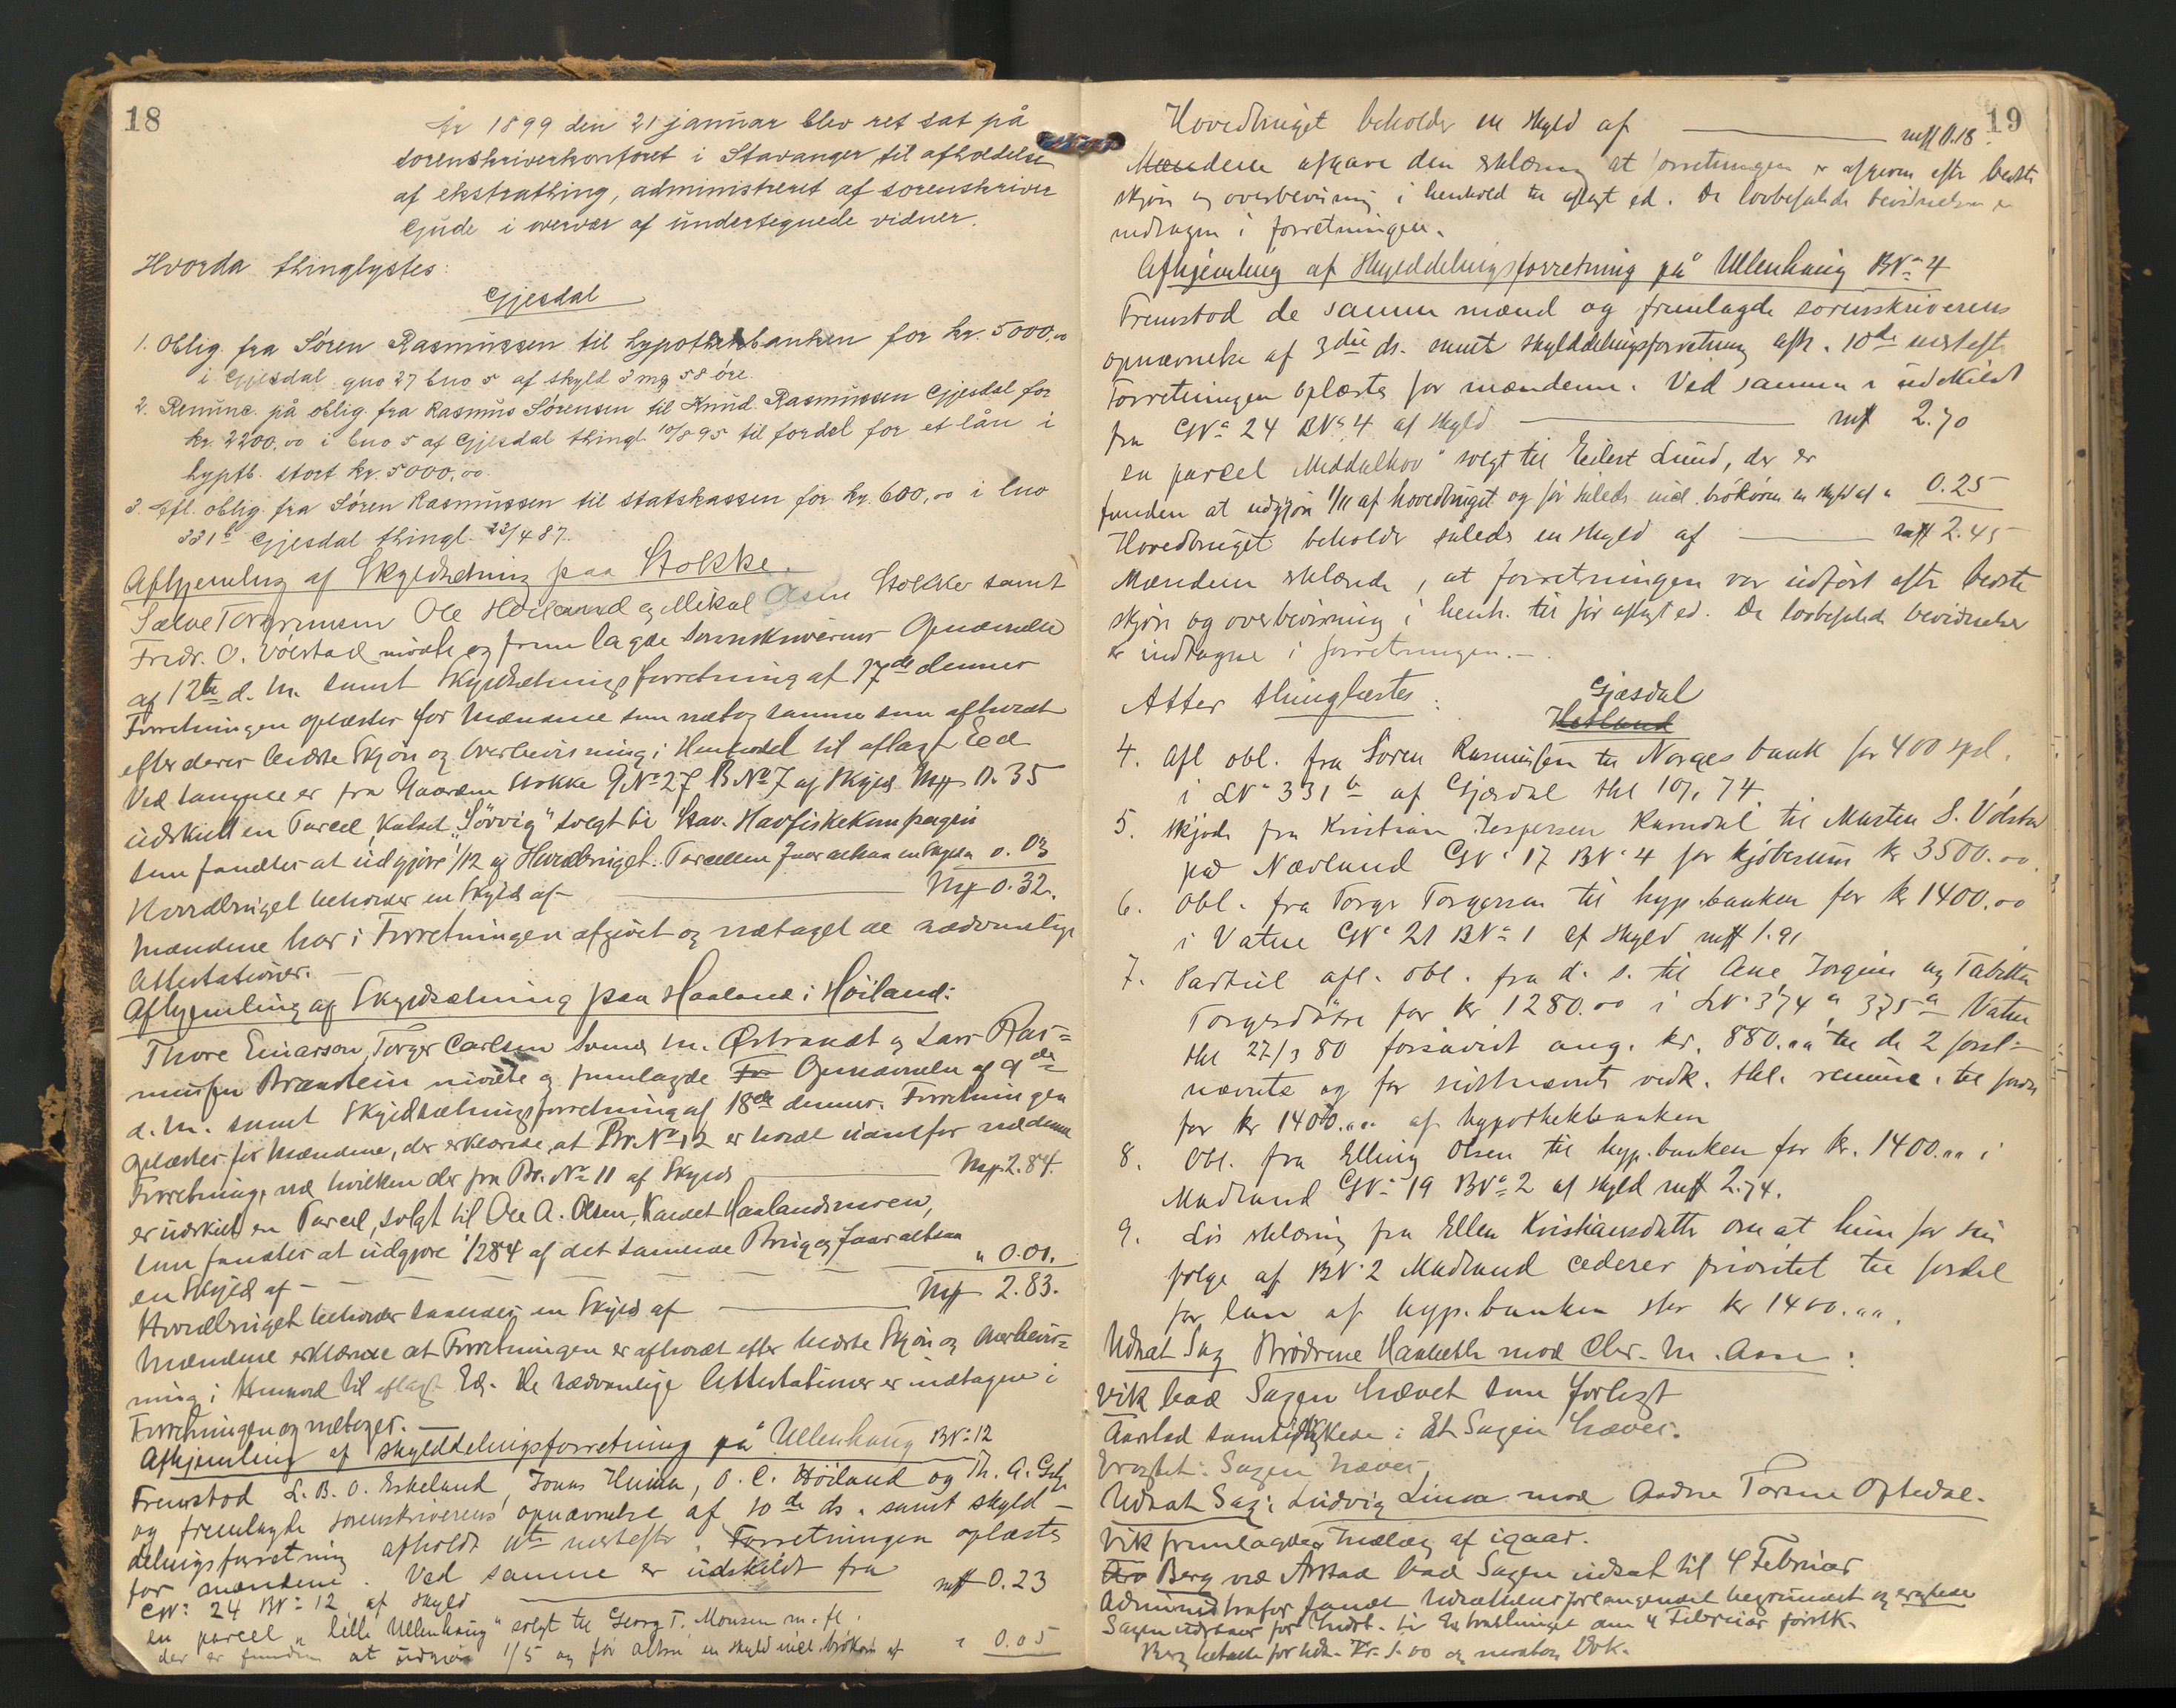 18
År 1899 den 21 januar blev ret sat på
sorenskriverkontoret i Stavanger til afholdelse
af ekstrathing, administreret af sorenskriver
Gjude i overvær af undertegnede vidner.
Hvorda thinglystes:
Gjesdal
1. Oblig. fra Søren Rasmussen til hypothekbanken for kr. 5000,00
i Gjesdal gno 27 bno 5 af skyld 3 mg 58 øre.
2. Renunc. på oblig. fra Rasmus Sørensen til Knud Rasmussen Gjesdal for
kr. 2200,00 i bno 5 af Gjesdal thingl. 10/8 95 til fordel for et lån i
hyptb. stort kr. 5000,00.
3. Afl. oblig. fra Søren Rasmussen til statskassen for kr. 600,00 i lno
331b Gjesdal thingl. 22/4 87.
Afhjemling af Skyldsætning paa Stokke.
Ole Høiland og Mikal Asen Stokke samt
Fredr. O. Volstad mødte og fremlagde Sorenskriverens Opnævnelse
af 12te d. M. samt Skyldsætningsforretning af 17de dennes
Forretningen oplæstes for Mændene som vedtog samme som afholdt
efter deres bedste Skjøn og Overbevisning i Henhold til aflagt Eed
Ved samme er fra Gaarden Stokke G.No 27 B.No 7 af Skyld Mk 0.35
udskilt en Parcel kaldet "Sövvig" solgt til Stav. Havfiskekompagni
som fandtes at udgjøre 1/12 af Hovedbruget. Parcellen faar altsaa en Skyld " 0.03
Hovedbruget beholder en Skyld af Mk 0.32.
Mændene har i Forretningen afgivet og vedtaget de nødvendige
Attestationer.
Afhjemling af Skyldsætning paa Haaland i Høiland:
Thore Einarson, Torger Carlsen Somme M. Østrandt og Lars Ras=
mussen Brandstein mødte og fremlagde Opnævnelse af 9de
d. M. samt Skyldsætningsforretning af 18de dennes. Forretningen
oplæstes for Mændene, der erklærede, at Br.No 12 er holdt udenfor nedenn.
Forretning, ved hvilken der fra Br. No 11 af Skyld Mk 2.84.
er udskilt en Parcel, solgt til Ole A. Olsen, kaldet Haalandsmoen,
som fandtes at udgjøre 1/284 af det samlede Brug og faar altsaa
en Skyld af " 0.01.
Hovedbruget beholder saaledes en Skyld af Mk 2.83.
Mændene erklærede at Forretningen er afholdt efter bedste Skjøn og Overbevis=
ning i Henhold til aflagt Ed. De sædvanlige Attestationer er indtagne i
Forretningen og vedtoges.
Afhjemling af skylddelingsforretning på Ullenhaug BN: 12
Fremstod L. B. O. Eskeland, Jonas O. C. Höiland og Th. A.
og fremlagde sorenskriverens opnævnelse af 10de ds. samt skyld-
delingsforretning afholdt 11te næstefter. Forretningen oplæstes
for mændene. Ved samme er udskildt fra
GN: 24 BN: 12 af skyld mk 0.23
en parcel "lille Ullenhaug" solgt til Georg T. Monsen m. fl.
der er funden at udgjøre 1/5 og får altså en skyld incl. brökøre af " 0.05
19
Hovedbruget beholder en skyld af mk 0.18.
Mændene afgave den erklæring at forretningen er afgiven efter bedste
skjøn og overbevisning i henhold til aflagt ed. De lovbefalede bevidnelser er
indtagen i forretningen.
Afhjemling af Skylddelingsforretning på Ullenhaug BN: 4
Fremstod de samme mænd og fremlagde sorenskriverens
opnævnelse af 3die ds. samt skylddelingsforretning afh. 10de næstefter
Forretningen oplæstes for mændene. Ved samme er udskildt
fra GN: 24 BN: 4 af skyld mk 2.70
en parcel "Meddalhov" solgt til Eilert Lund, der er
funden at udgjøre 1/11 af hovedbruget og får således incl. brökøren en skyld af " 0.25
Hovedbruget beholder således en skyld af mk 2.45
Mændene erklærede, at forretningen var udført efter bedste
skjøn og overbevisning i henh. til før aflagt ed. De lovbefalede bevidnelser
er indtagne i forretningen.
Atter thinglæstes:
Gjæsdal
Hetland
4. Afl obl. fra Søren Rasmussen til Norges bank for 400 spd.
i LN: 331b af Gjæsdal thl 10/1 74
5. Skjøde fra Kristian Jespersen Ramdal til Marten S. Volstad
på Nævland GN: 17 BN: 4 for kjöbesum kr 3500.00
6. Obl. fra Torger Torgersen til hyp.banken for kr 1400.00
i Vatne GN: 21 BN: 1 af skyld mk 1.91
7. Partiel afl. obl. fra d. s. til Ane, Jorgine og Tabitha
Torgersdøtre for kr 1280.00 i LN: 374a 375a Vatne
thl 27/3 80 forsåvidt ang. kr. 880.00 til de 2 først-
nævnte og for sidstnævnte vedk. thl. renunc. til fordel
for kr 1400.00 af hypothekbanken
8. Obl. fra Elling Olsen til hyp.banken for kr. 1400.00 i
Madland GN: 19 BN: 2 af skyld mk 2.74.
9. Løs erklæring fra Ellen Kristiansdatter om at hun for sin
følge af BN: 2 Madland cederer prioritet til fordel
for lån af hyp.banken stor kr 1400.00.
Udsat Sag Brødrene Haabeth mod Chr. M. Aase:
Vik bad Sagen hævet som forligt
Aarstad samtykkede i at Sagen hæves.
Eragtet: Sagen hæves
Udsat Sag: Ludvig Linva mod Aadne Torsen Oftedal.
Vik fremlagde Indlæg af igaar.
Berg ved Arstad bad Sagen udsat til 4 Februar
Administrator fandt Udsættelsesforlangendet begrundet og eragtede
Sagen udsættes for Indst. til Extrathinget den 4 Februar førstk.
Berg betalte for Uds. Kr. 1.00